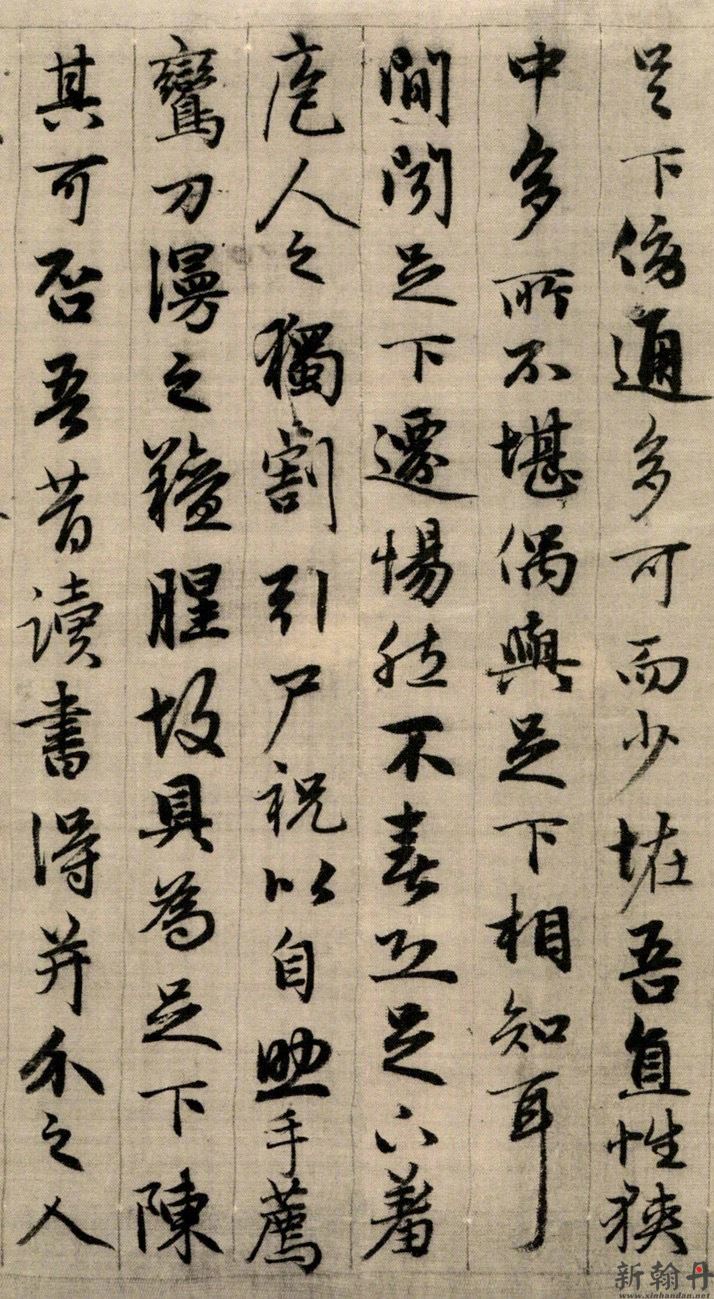 足下傍通多可而少恠吾直性狹
中多所不堪偶與足下相知耳
間聞足下遷惕然不喜恐足下羞
庖人之獨割引尸祝以自助手薦
鸞刀漫之羶腥故具為足下陳
其可否吾昔讀書得并介之人
新翰丹
www.xinhandan.net